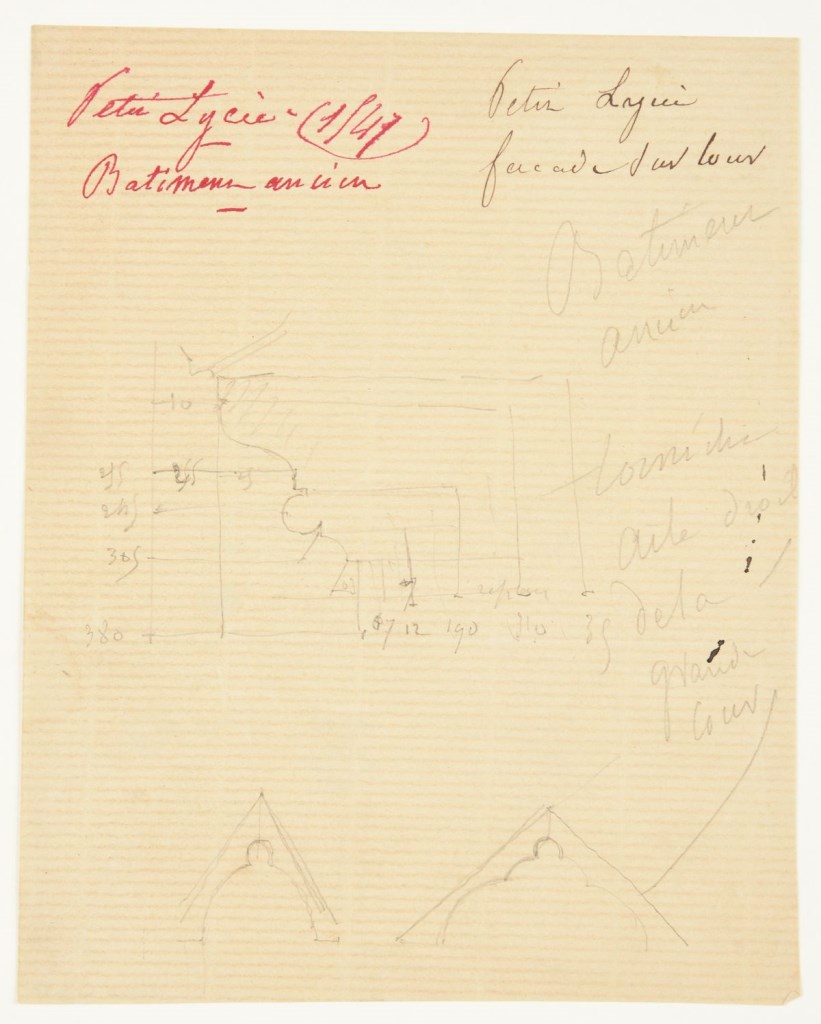 Petit Lycée (1547)
Batiment ancien
Petit Lycée
façade sur cour
Batiment
ancien
Corniche
aile droite
de la
grande
cour
10
25
245
305
380
12 190 310 35